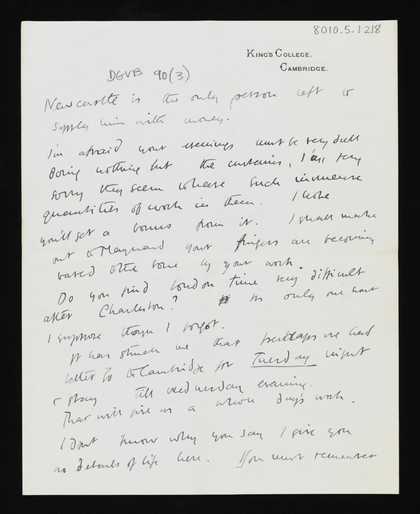 8010.5.1218
KING'S COLLEGE,
CAMBRIDGE.
DGVB 90(3)
Newcastle is the only person left to
supply him with money.
I'm afraid your evenings must be very dull
doing nothing but the curtains, I am very
sorry they seem to have such immense
quantities of work in them. I hope
you'll get a bonus from it. I shall make
out to Maynard your fingers are becoming
to the bone by your work.
Do you find London time very difficult
after Charleston? It's only one hour
I suppose though I forgot.
It has struck me that perhaps we had
better go to Cambridge for Tuesday night
& stay till Wednesday evening.
That will give us a whole day's work.
I don't know why you say I give you
no details of life here. You must remember